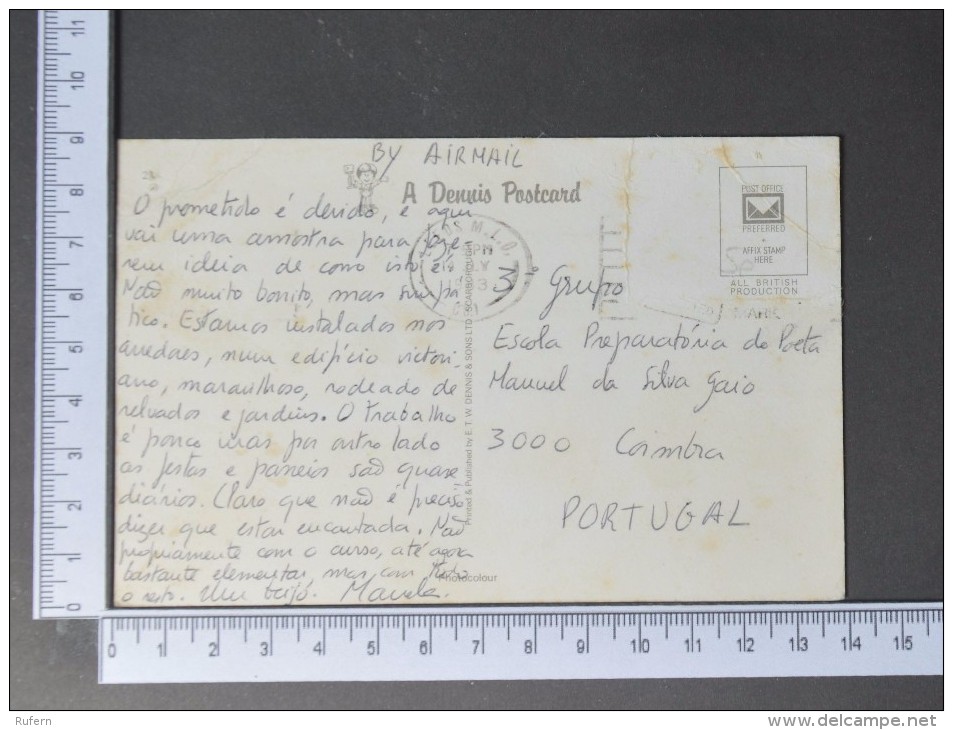 BY AIRMAIL
A Dennis Postcard
POST OFFICE
PREFERRED
AFFIX STAMP
HERE
ALL BRITISH
PRODUCTION
O prometido é devido, e aqui
vai uma amostra para faze-
rem ideia de como isto é.
Não muito bonito, mas simpá-
tico. Estamos instalados nos
arredores, num edifício victori-
ano, maravilhoso, rodeado de
relvados e jardins. O trabalho
é pouco mas por outro lado
as festas e passeios são quase
diários. Claro que não é preciso
dizer que estou encantada. Não
propriamente com o curso, até agora
bastante elementar, mas com todo
o resto. Um beijo. Manela.
3º Grupo
Escola Preparatória do Poeta
Manuel da Silva Gaio
3000 Coimbra
PORTUGAL
Printed & Published by E. T. W. DENNIS & SONS LTD SCARBOROUGH
Photocolour
0 1 2 3 4 5 6 7 8 9 10 11
0 1 2 3 4 5 6 7 8 9 10 11 12 13 14 15
Rufern
www.delcampe.net